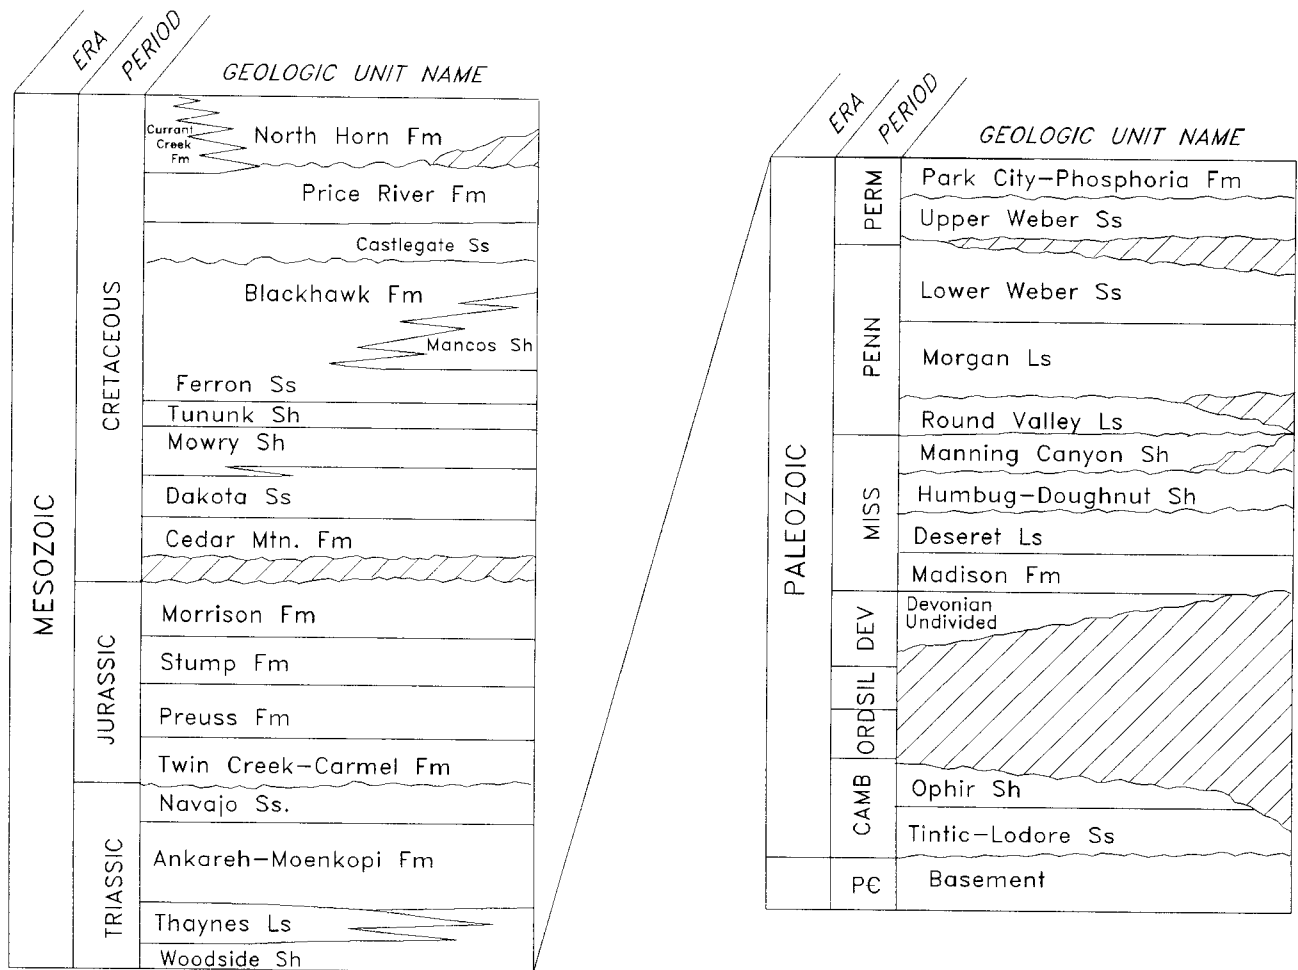 ERA
PERIOD
GEOLOGIC UNIT NAME
MESOZOIC
CRETACEOUS
Currant
Creek
Fm
North Horn Fm
Price River Fm
Castlegate Ss
Blackhawk Fm
Mancos Sh
Ferron Ss
Tununk Sh
Mowry Sh
Dakota Ss
Cedar Mtn. Fm
JURASSIC
Morrison Fm
Stump Fm
Preuss Fm
Twin Creek–Carmel Fm
TRIASSIC
Navajo Ss.
Ankareh–Moenkopi Fm
Thaynes Ls
Woodside Sh
ERA
PERIOD
GEOLOGIC UNIT NAME
PALEOZOIC
PERM
Park City–Phosphoria Fm
Upper Weber Ss
PENN
Lower Weber Ss
Morgan Ls
Round Valley Ls
MISS
Manning Canyon Sh
Humbug–Doughnut Sh
Deseret Ls
Madison Fm
DEV
Devonian
Undivided
SIL
ORD
CAMB
Ophir Sh
Tintic–Lodore Ss
P€
Basement